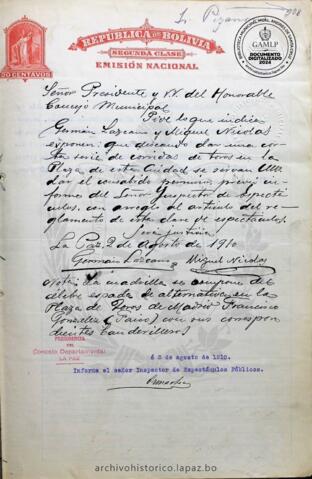 Sr. Pizarro
908
REPUBLICA DE BOLIVIA
SEGUNDA CLASE
EMISIÓN NACIONAL
20 CENTAVOS
GAMLP
DOCUMENTO
DIGITALIZADO
2024
Señor Presidente y VV. del Honorable
Concejo Municipal
Pide lo que indica
Germán Lozcano y Miguel Nicolas
exponen: que deseando dar una cor-
ta serie de corridas de toros en la
Plaza de esta Ciudad se sirvan Uds.
dar el consabido permiso previo in-
forme del Señor Inspector de Espectá-
culos, con arreglo al artículo del re-
glamento de esta clase de espectáculos.
Será justicia.
La Paz, 2 de Agosto de 1910
Germán Lozcano Miguel Nicolas
Nota: La cuadrilla se compone del
célebre espada de alternativa en la
Plaza de Toros de Madrid Francisco
Gonzalez (Faico) con sus correspon-
dientes banderilleros
PRESIDENCIA
DEL
Concejo Departamental
LA PAZ
á 3 de agosto de 1910.
Informe el señor Inspector de Espectáculos Públicos.
archivohistorico.lapaz.bo